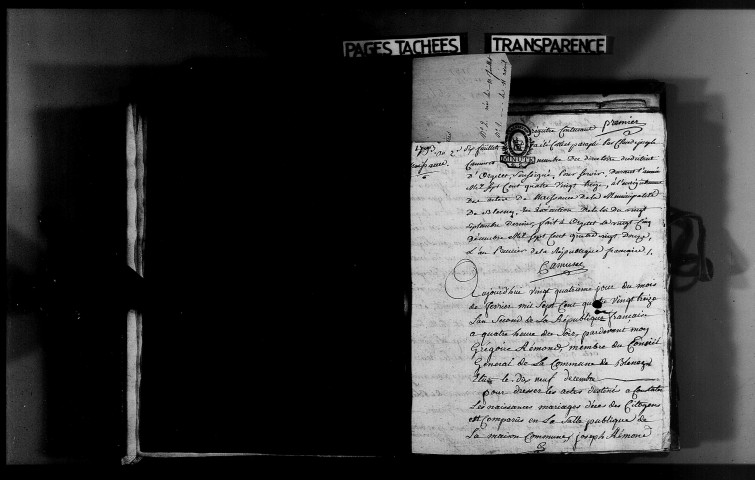 PAGES TACHEES TRANSPARENCE
premier
registre Contenant
Sept feuillets a été Cotté et paraphé par Claude joseph
Camuset membre du directoire du district
d'Orgelet, Soussigné, pour servir, durant l'année
Mil Sept Cent quatre vingt treize, à l'enregistrement
des actes de Naissance de la Municipalité
de Blesney, En Exécution de la loi du vingt
Septembre dernier, fait à Orgelet le vingt Cinq
Décembre Mil Sept Cent quatre vingt douze,
L'an Premier de la République française.
Camuset
Aujourdhui vingt quatrieme jour du mois
de fevrier mil Sept Cent quatre vingt treize
Lan Second de la République francaise
a quatre heure du Soir, pardevant moy
Grégoire Aémond, membre du Conseil
General de La Commune de
Elus le dix neuf decembre
pour dresser les actes destiné a Constater
Les naissances mariages décès des Citoyens
est Comparûs en La Salle publique de
La maison Commune, joseph Aémond